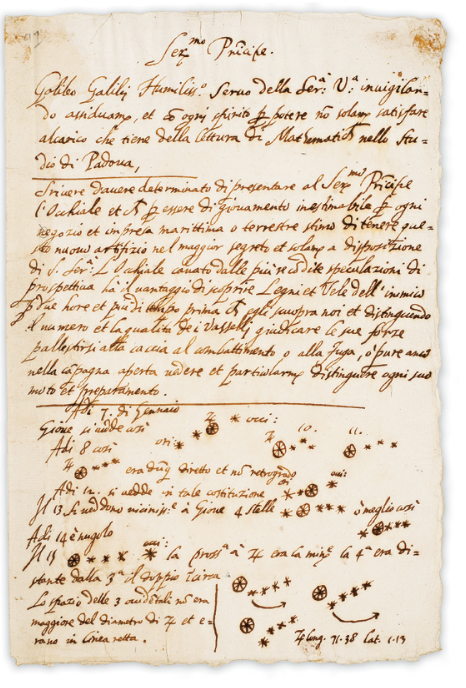 Ser.mo Principe.
Galileo Galilei Humiliss.o Servo della Ser.a V.a invigilan-
do assiduam.te, et cō ogni spirito ꝑ potere nō solam satisfare
alcarico che tiene della lettura di Mathematica nello Stu-
dio di Padova,
Scrivere davere determinato di presentare al Ser.mo Prīcipe
l'Occhiale et ꝑ essere di giovamento inestimabile ꝑ ogni
negozio et impresa marittima o terrestre stimo di tenere que-
sto nuovo artifizio nel maggior segreto et solam.e a disposizione
di S. Ser.a L'Occhiale cavato dalle più recōdite speculazioni di
prospettiva ha il vantaggio di scoprire Legni et Vele dell'inimico
ꝑ due hore et più di tempo prima egli scuopra noi et distinguendo
il numero et la qualità dei Vasselli giudicare le sue forze
pallestirsi alla caccia al combattimento o alla fuga, o pure anco
nella cāpagna aperta vedere et particolarm.e distinguere ogni suo
moto et preparamento.
Adi 7. di Gennaio
Giove si vedde così
Adi 8 così
era dūq diretto et nō retrogrado
10. 11.
Adi 12. si vedde in tale costituzione
Il 13 si veddono viciniss.e à Giove 4 stelle ò meglio così
Adi 14 è nugolo
Il 15 la pross.a à ♃ era la min.e la 4.a era di-
stante dalla 3.a il doppio circa
Lo spazio delle 3 occidētali nō era
maggiore del diametro di ♃ et e-
rano in linea retta.
♃ long. 71.38 lat. 1.13